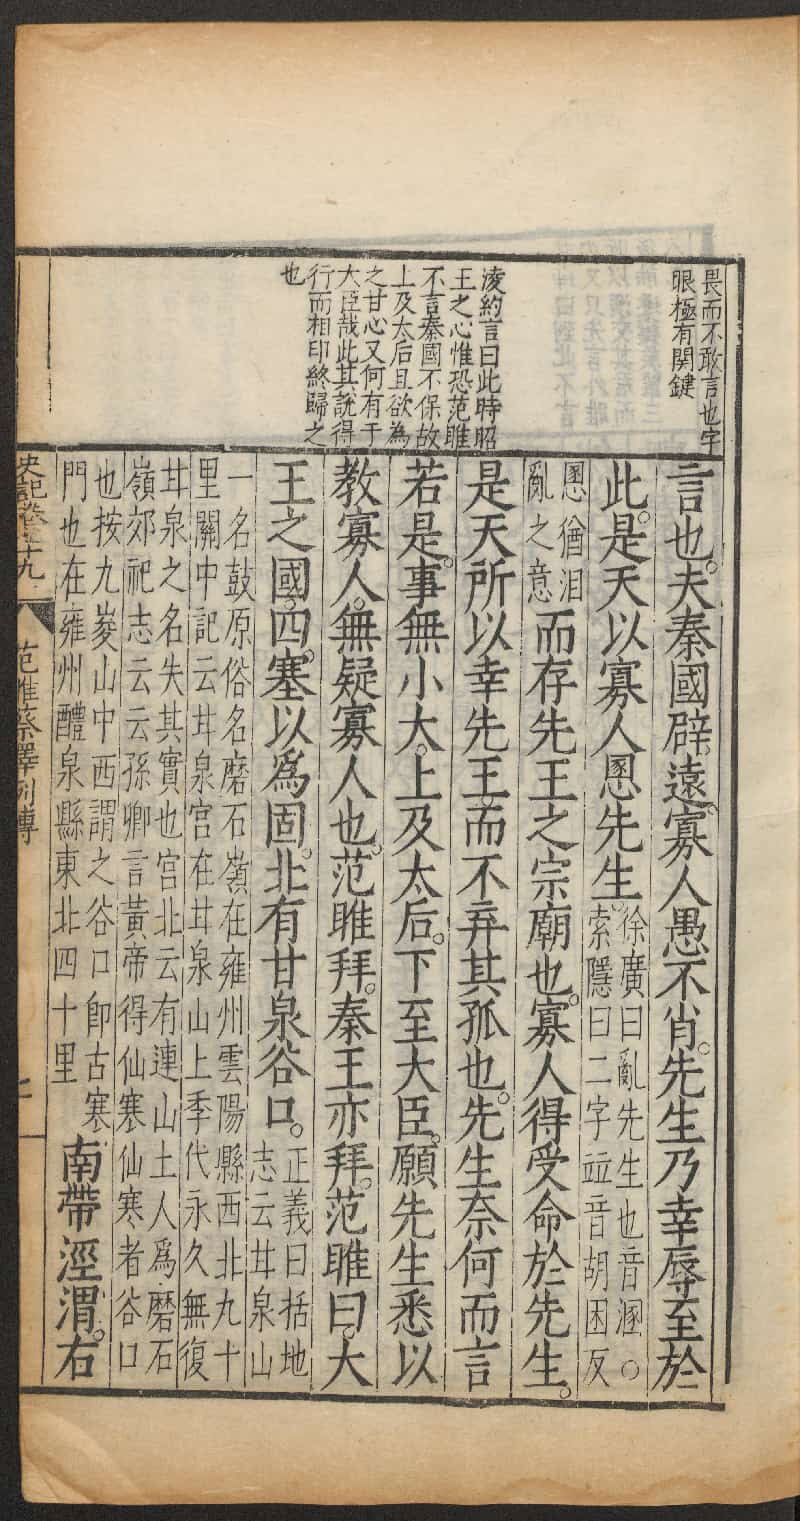 畏而不敢言也字
眼極有関鍵
凌約言曰此時昭
王之心惟恐范睢
不言秦國不保故
上及太后且欲為
之甘心又何有于
大臣哉此其說得
行而相印終歸之
也
言也。夫秦國辟。遠。寡人愚不肖。先生乃幸辱至於
此。是天以寡人慁先生。徐廣曰亂先生也音溷○
索隱曰二字竝音胡困反
慁猶汨
亂之意而存先王之宗廟也。寡人得受命於先生。
是天所以幸先王而不弃其孤也。先生奈何而言
若是。事無小大。上及太后。下至大臣。願先生悉以
教寡人。無疑寡人也。范睢拜。秦王亦拜。范睢曰。大
王之國。四。塞以爲固。北有甘泉谷口。正義曰括地
志云甘泉山
一名鼓原俗名磨石嶺在雍州雲陽縣西北九十
里關中記云甘泉宮在甘泉山上季代永久無復
甘泉之名失其實也宮北云有連山土人爲磨石
嶺郊祀志云云孫卿言黃帝得仙寒仙寒者谷口
也按九嵏山中西謂之谷口卽古寒
門也在雍州醴泉縣東北四十里南帶涇渭。右
史記卷七十九
范睢蔡澤列傳